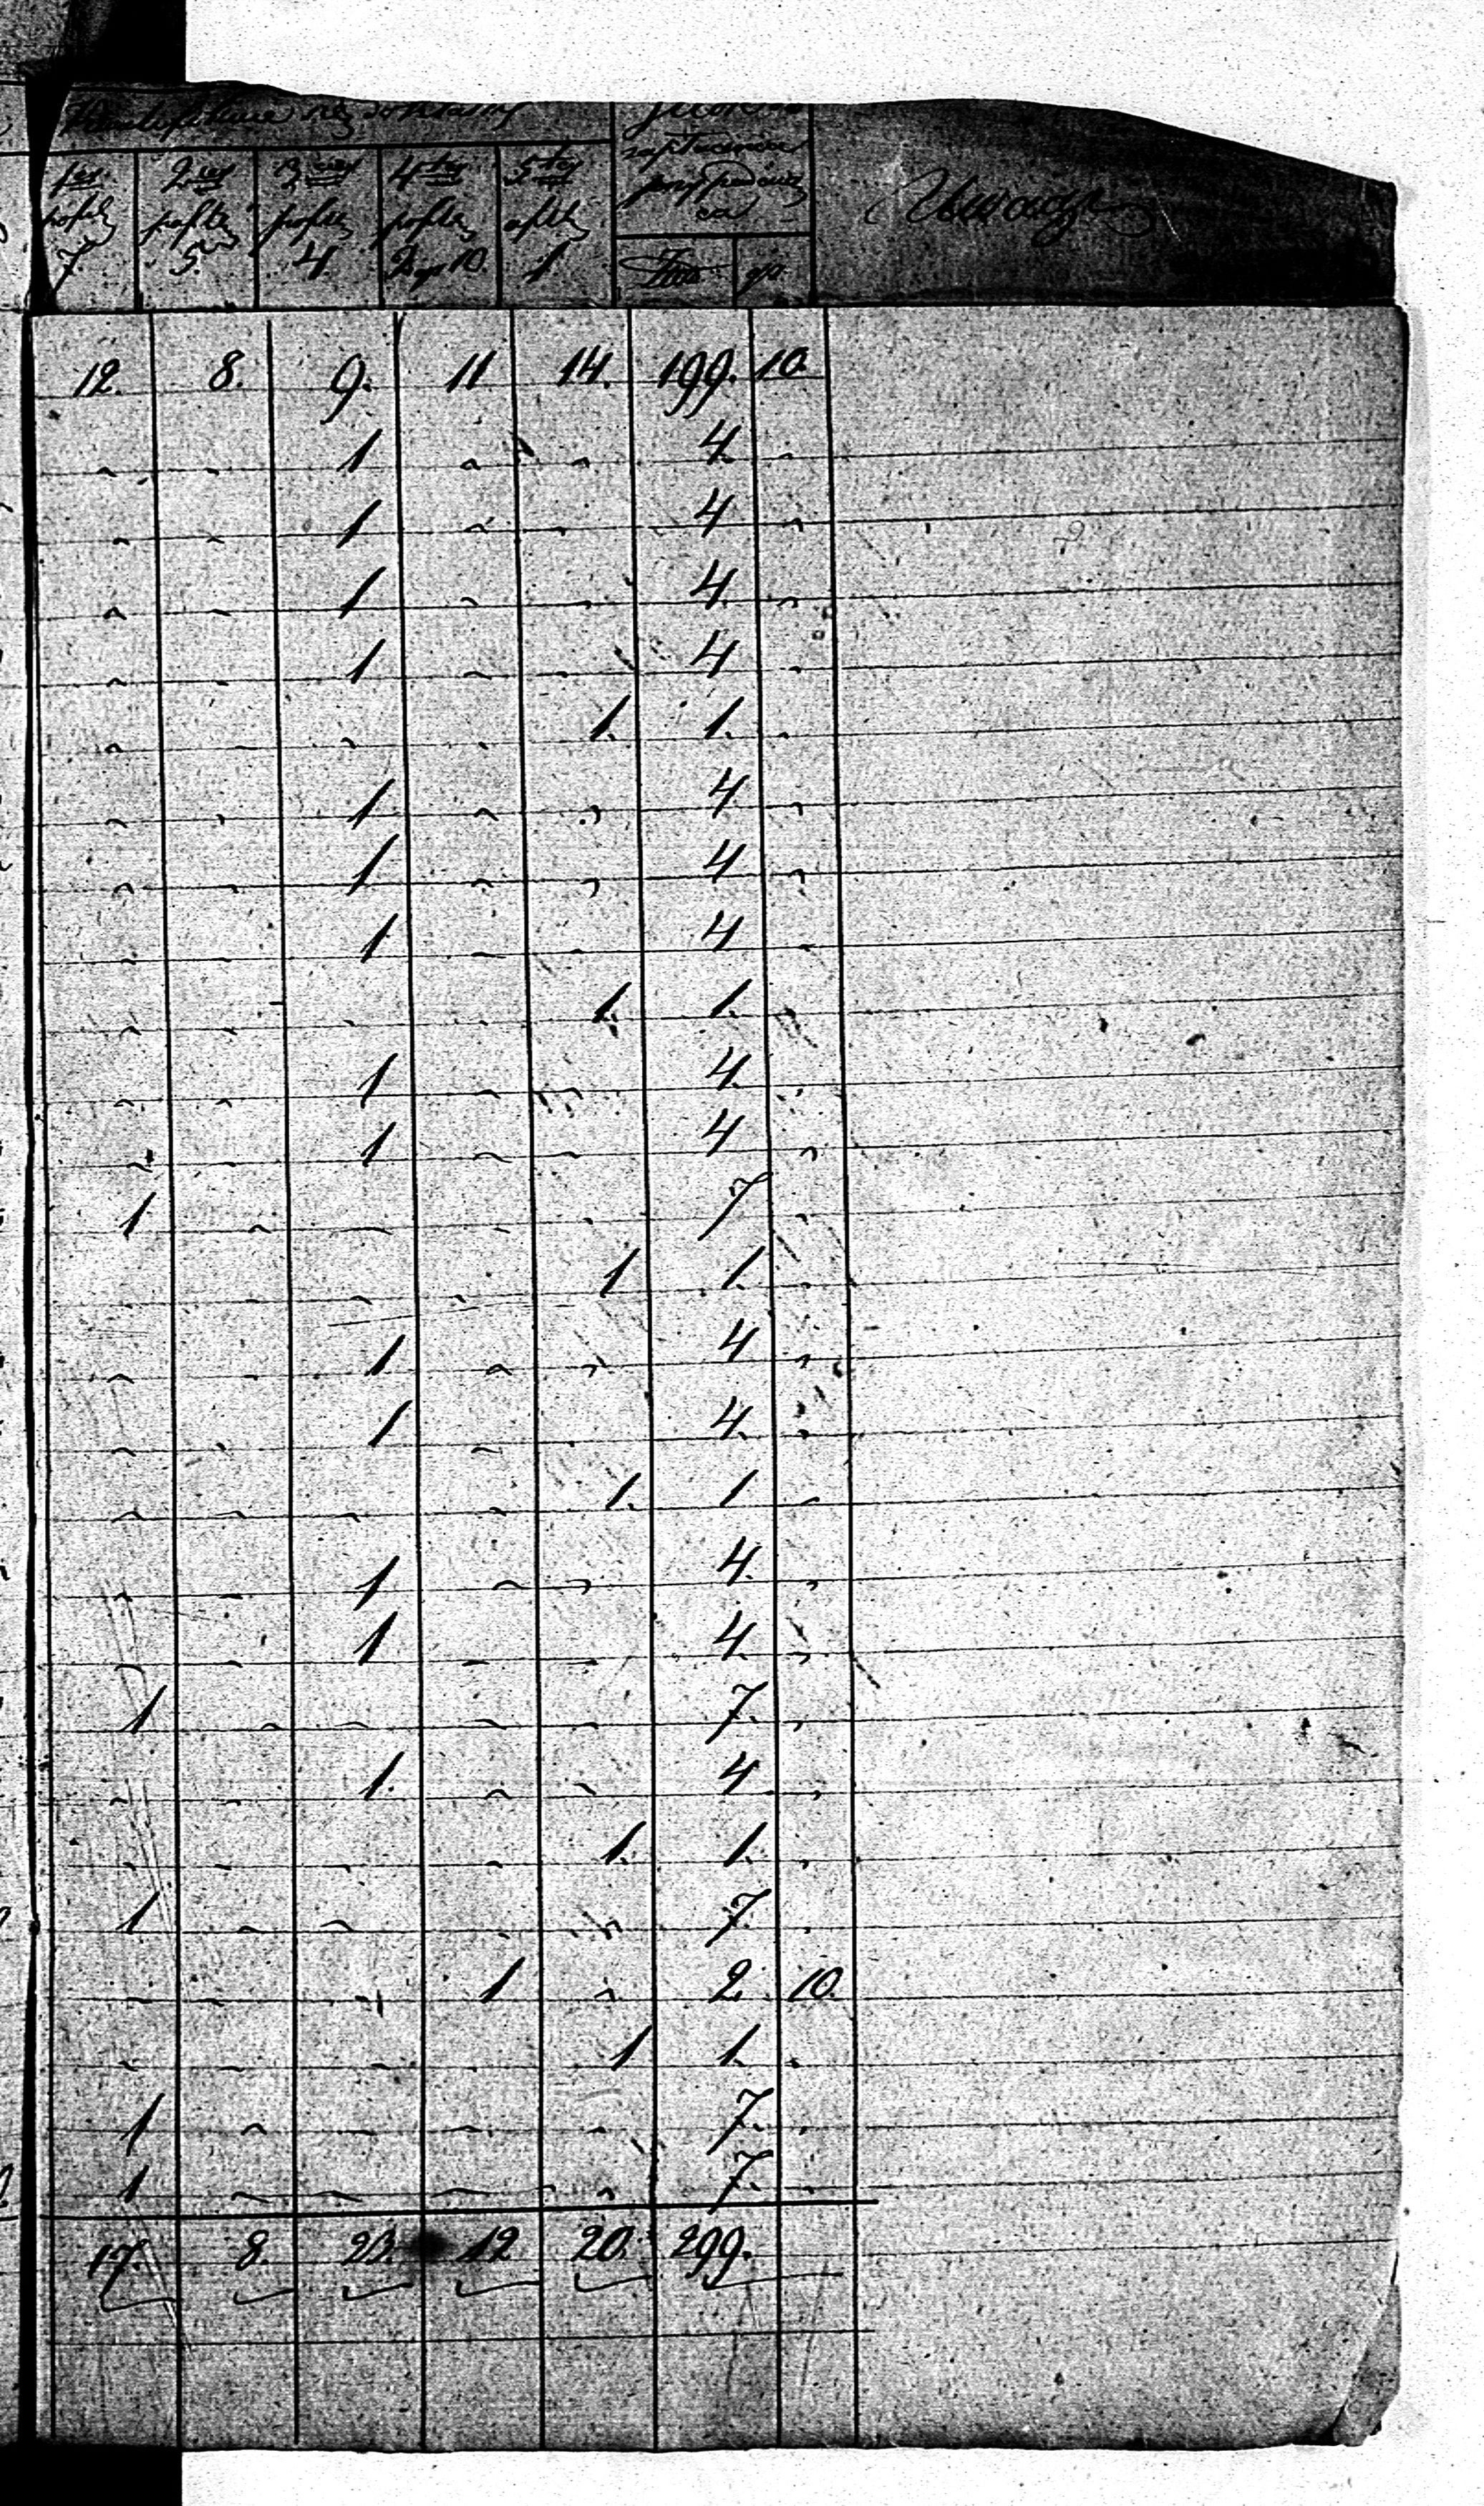 7. 5. 4. 2 гр 10. 1
12. 8. 9. 11 14. 199. 10.
" " 1 " " 4. "
" " 1 " " 4 "
" " 1 " " 4. "
" " 1 " " 4 "
" " " " 1. 1. "
" " 1 " " 4 "
" " 1 " " 4 "
" " 1 " " 4 "
" " " " 1. 1.
" " 1 " " 4. "
" " 1 " " 4 "
1 " " " " 7 "
" " " " 1 1. "
" " 1 " " 4 "
" " 1 " " 4. "
" " " " 1. 1 "
" " 1 " " 4. "
" " 1 " " 4. "
1 " " " " 7. "
" " 1. " " 4 "
" " " " 1. 1. "
1 " " " " 7. "
" " " 1 " 2. 10.
" " " " 1 1. "
1 " " " " 7. "
1 " " " " 7. "
17. 8. 23. 12 20. 299.